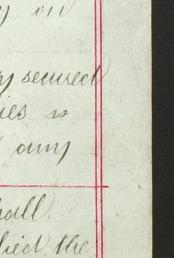 y on
y secured
ies is
any
hall
lied the